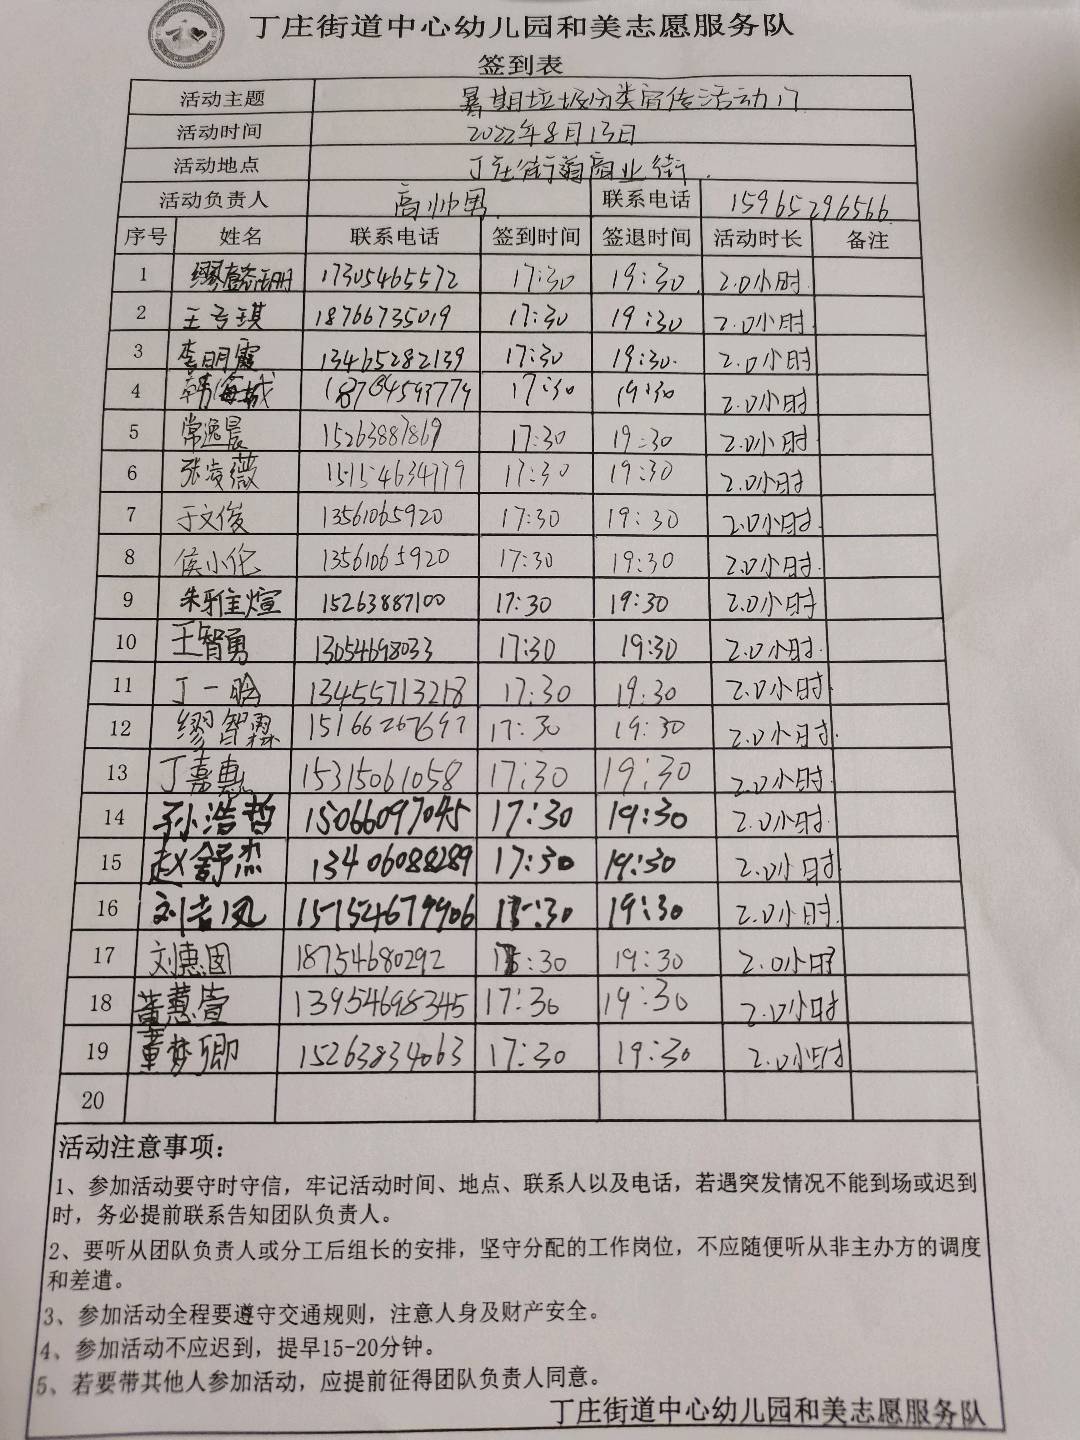 丁庄街道中心幼儿园和美志愿服务队
签到表
活动主题 暑期垃圾分类宣传活动
活动时间 2022年8月13日
活动地点 丁庄街道商业街.
活动负责人 高帅男 联系电话 15965296566
序号 姓名 联系电话 签到时间 签退时间 活动时长 备注
1 17305465572 17:30 19:30 2.0小时
2 王亏琪 18766735019 17:30 19:30 2.0小时
3 李明霞 13465282139 17:30 19:30 2.0小时
4 韩海城 18704593779 17:30 19:30 2.0小时
5 常逸晨 15263887869 17:30 19:30 2.0小时
6 张凌薇 15154634779 17:30 19:30 2.0小时
7 于文俊 13561065920 17:30 19:30 2.0小时
8 侯小伦 13561065920 17:30 19:30 2.0小时
9 朱雅煊 15263887100 17:30 19:30 2.0小时
10 王智勇 13054698033 17:30 19:30 2.0小时
11 丁一晗 13455713218 17:30 19:30 2.0小时
12 缪智霖 15166267697 17:30 19:30 2.0小时
13 丁嘉惠 15315061058 17:30 19:30 2.0小时
14 孙浩哲 15066097045 17:30 19:30 2.0小时
15 赵舒杰 13406088289 17:30 19:30 2.0小时
16 刘吉凤 15154679906 17:30 19:30 2.0小时
17 刘惠国 18754680292 17:30 19:30 2.0小时
18 董慧萱 13954698345 17:30 19:30 2.0小时
19 董梦卿 15263834063 17:30 19:30 2.0小时
20
活动注意事项：
1、参加活动要守时守信，牢记活动时间、地点、联系人以及电话，若遇突发情况不能到场或迟到
时，务必提前联系告知团队负责人。
2、要听从团队负责人或分工后组长的安排，坚守分配的工作岗位，不应随便听从非主办方的调度
和差遣。
3、参加活动全程要遵守交通规则，注意人身及财产安全。
4、参加活动不应迟到，提早15-20分钟。
5、若要带其他人参加活动，应提前征得团队负责人同意。
丁庄街道中心幼儿园和美志愿服务队